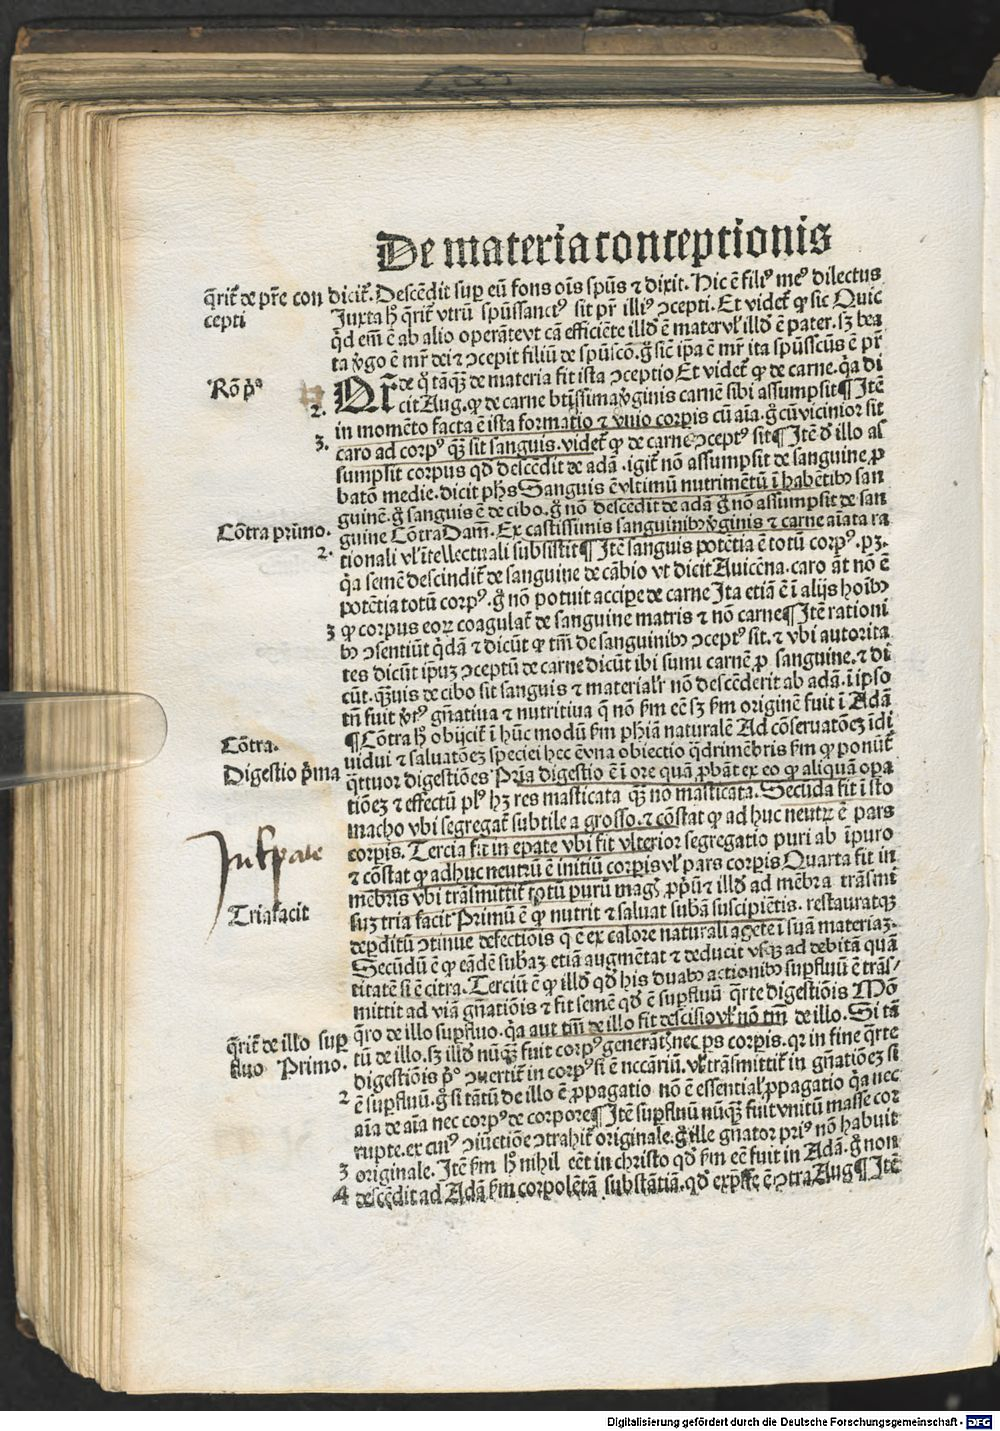 De materia conceptionis
q̄rit̄ de pr̄e con
cepti
dicit̄. Descēdit sup̱ eū fons oīs sp̄us ⁊ dixit. Hic ē filiꝰ meꝰ dilectus
Juxta h̄ q̄rit̄ vtrū sp̄ussanctꝰ sit pr̄ illiꝰ ↄcepti. Et videt̄ ꝙ sic Quic
ta v̓go ē mr̄ dei ⁊ ↄcepit filiū de sp̄uscō. g̊ sic ip̄a ē mr̄ ita sp̄usscūs ē pr̄
Rō p̓ᵃ
de q̊ tāqꝫ de materia fit ista ↄceptio Et videt̄ ꝙ de carne. q̓a di
2.
cit Aug. ꝙ de carne btīssima v̓ginis carnē sibi assumpsit ¶ Itē
in momēto facta ē ista formatio ⁊ vnio corp̱is cū aīa. g̊ cū vicinior sit
3.
caro ad corpꝰ qꝫ sit sanguis. videt̄ ꝙ de carne ↄceptꝰ sit ¶ Itē d̓ illo as
sumpsit corpus qd̓ descēdit de adā. igit̄ nō assumpsit de sanguine. ꝓ
batō medie. dicit ph̄s Sanguis ē vltimū nutrimētū ī habētibꝫ san
guinē. g̊ sanguis ē de cibo. g̊ nō descēdit de adā g̊ nō assumpsit de san
Cōtra prīmo.
guine Cōtra Dam̄. Ex castissimis sanguinibꝫ v̓ginis ⁊ carne aīata ra
2.
tionali vl̓ ītellectuali subsistit ¶ Itē sanguis potētia ē totū corpꝰ. pꝫ.
q̓a semē descindit̄ de sanguine de cābio vt dicit Auicēna. caro āt nō ē
potētia totū corpꝰ. g̊ nō potuit accip̱e de carne Ita etiā ē ī alijs hoībꝫ
3
ꝙ corpus eoꝝ coagulat̄ de sanguine matris ⁊ nō carne ¶ Itē rationi
bꝫ ↄsentiūt q̓dā ⁊ dicūt ꝙ tm̄ de sanguinibꝫ ↄceptꝰ sit. ⁊ vbi autorita
tes dicūt ip̄uꝫ ↄceptū de carne dicūt ibi sumi carnē ꝓ sanguine. ⁊ di
cūt. qꝫuis de cibo sit sanguis ⁊ materialr̓ nō descēderit ab adā. ī ipso
tn̄ fuit v̓tꝰ gn̄atiua ⁊ nutritiua q̄ nō ẜm eē sꝫ ẜm originē fuit ī Adā
Cōtra.
¶ Cōtra h̄ obijcit̄ ī hūc modū ẜm phīa naturalē Ad cōseruatōeꝫ īdi
Digestio p̓ma
uidui ⁊ saluatōeꝫ speciei hec ē vna obiectio q̓drimēbris ẜm ꝙ ponūt̄
q̓ttuor digestiōes Pria digestio ē ī ore quā ꝓbāt ex eo ꝙ aliquā op̱a
tiōeꝫ ⁊ effectū plꝰ hꝫ res masticata qꝫ nō masticata. Secūda fit ī sto
macho vbi segregat̄ subtile a grosso. ⁊ cōstat ꝙ ad huc neutꝝ ē pars
In epate
corp̱is. Tercia fit in epate vbi fit vlterior segregatio puri ab īpuro
⁊ cōstat ꝙ adhuc neutrū ē initiū corp̱is vl̓ pars corp̱is Quarta fit in
Tria facit
suꝫ tria facit Primū ē ꝙ nutrit ⁊ saluat subām suscipiētis. restauratqꝫ
dep̱ditū ↄtinue defectiōis q̄ ē ex calore naturali agēte ī suā materiaꝫ.
Secūdū ē ꝙ eādē subaꝫ etiā augmētat ⁊ deducit vsqꝫ ad debitā quā
titatē si ē citra. Terciū ē ꝙ illd̓ qd̓ his duabꝫ actionibꝫ sup̱fluū ē trās⸗
mittit ad viā gn̄atiōis ⁊ fit semē qd̓ ē sup̱fluū q̄rte digestiōis Mō
q̄rit̄ de illo sup̱
fluo Primo.
q̄ro de illo sup̱fluo. q̓a aut tm̄ de illo fit descisio vl̓ nō tm̄ de illo. Si tā
tū de illo. sꝫ illd̓ nūqꝫ fuit corpꝰ generātꝭ nec ps corp̱is. qꝛ in fine q̄rte
digestiōis p̓ꝰ ↄuertit̄ in corpꝰ si ē nc̄cariū. vl̓ trāsmittit̄ in gn̄atiōeꝫ si
2
ē sup̱fluū. g̊ si tātū de illo ē ꝓpagatio nō ē essential̓ ꝓpagatio q̓a nec
aīa de aīa nec corpꝰ de corpore ¶ Itē sup̱fluū nūqꝫ fuit vnitū masse cor
rupte. ex cuiꝰ ↄiūctiōe ↄtrahit̄ originale. g̊ ille gn̄ator priꝰ nō habuit
3
originale. Itē ẜm h̄ nihil eēt in christo qd̓ ẜm eē fuit in Adā. g̊ non
4
descēdit ad Adā ẜm corpolētā substātiā. qd̓ exp̄sse ē ↄtra Aug ¶ Itē
Digitalisierung gefördert durch die Deutsche Forschungsgemeinschaft - DFG